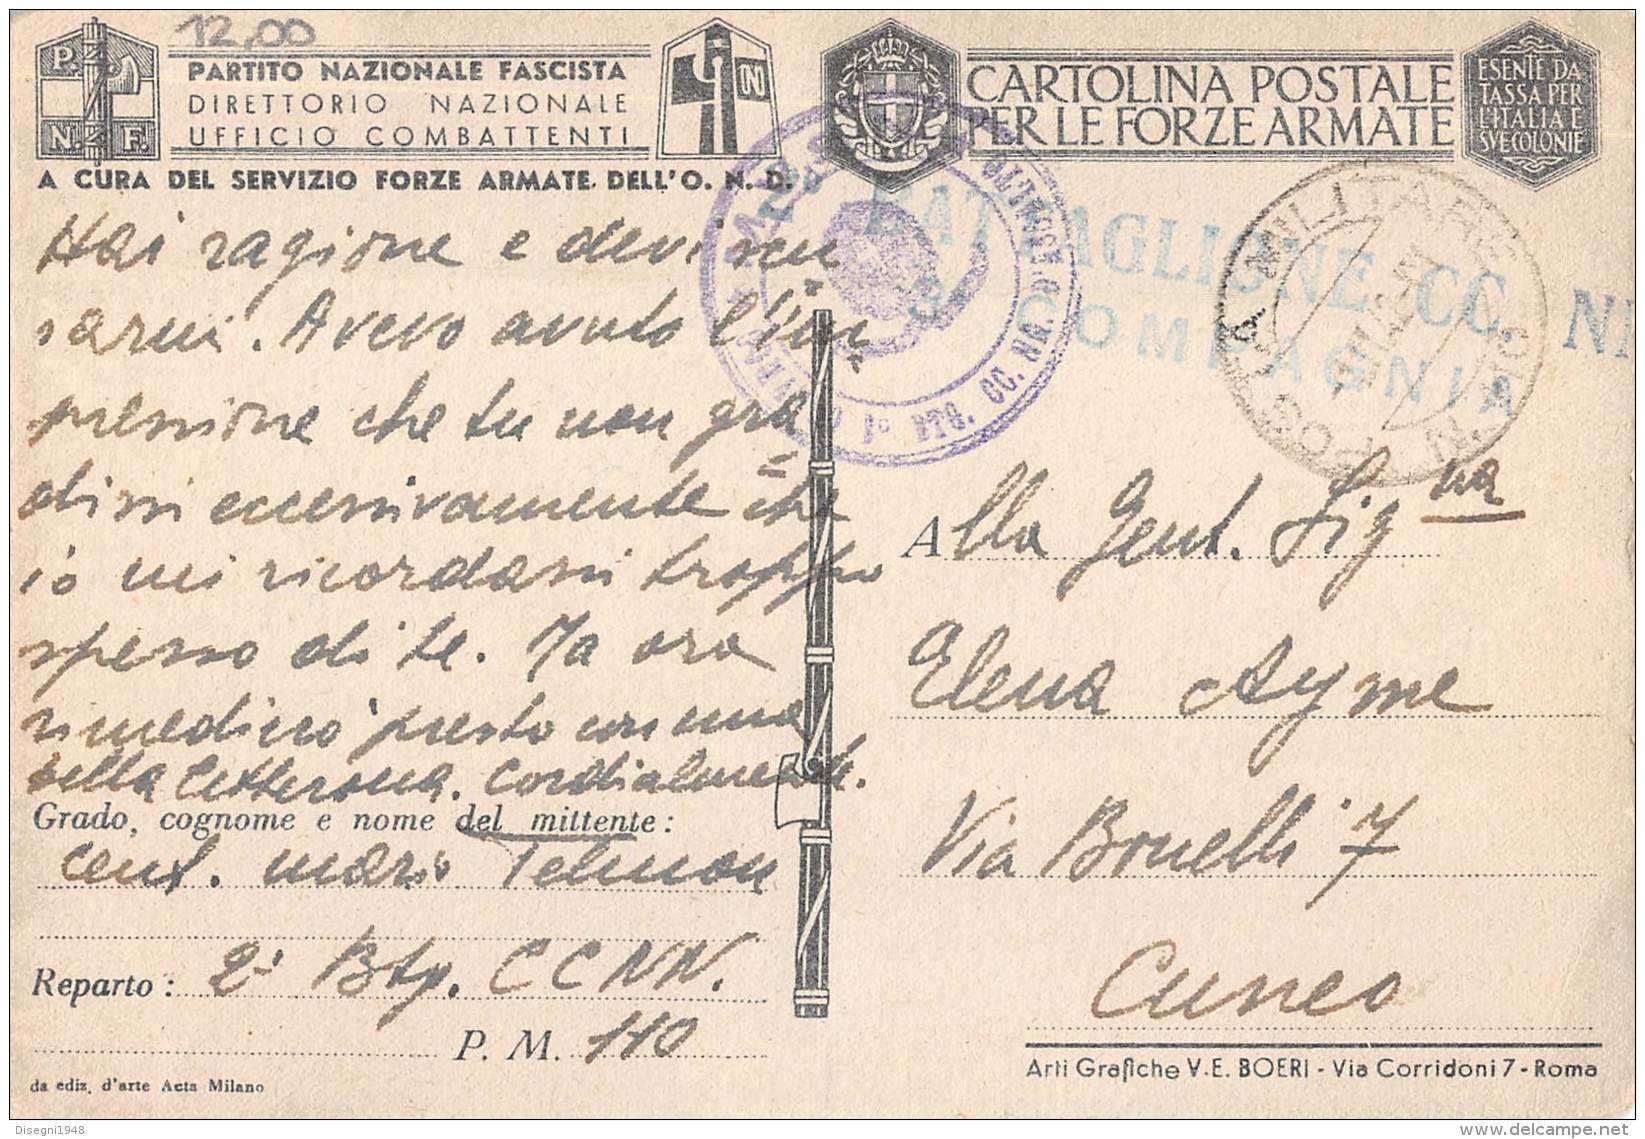 12,00
P. N. F.
PARTITO NAZIONALE FASCISTA
DIRETTORIO NAZIONALE
UFFICIO COMBATTENTI
A CURA DEL SERVIZIO FORZE ARMATE DELL'O. N. D.
CARTOLINA POSTALE
PER LE FORZE ARMATE
ESENTE DA
TASSA PER
L'ITALIA E
SUE COLONIE
BATTAGLIONE CC. NN
3 COMPAGNIA
Hai ragione e devi scu
sarmi. Avevo avuto l'im
pressione che tu non gra
dissi eccessivamente che
io mi ricordassi troppo
spesso di te. Ma ora
rimedierò presto con una
bella letterona. Cordialmente.
Grado, cognome e nome del mittente:
Cent. Mario Telmon
Reparto: 2° Btg. CCNN.
P. M. 110
da ediz. d'arte Acta Milano
Alla Gent. Sig.na
Elena Ayme
Via Bonelli 7
Cuneo
Arti Grafiche V. E. BOERI - Via Corridoni 7 - Roma
Disegni1948
www.delcampe.net